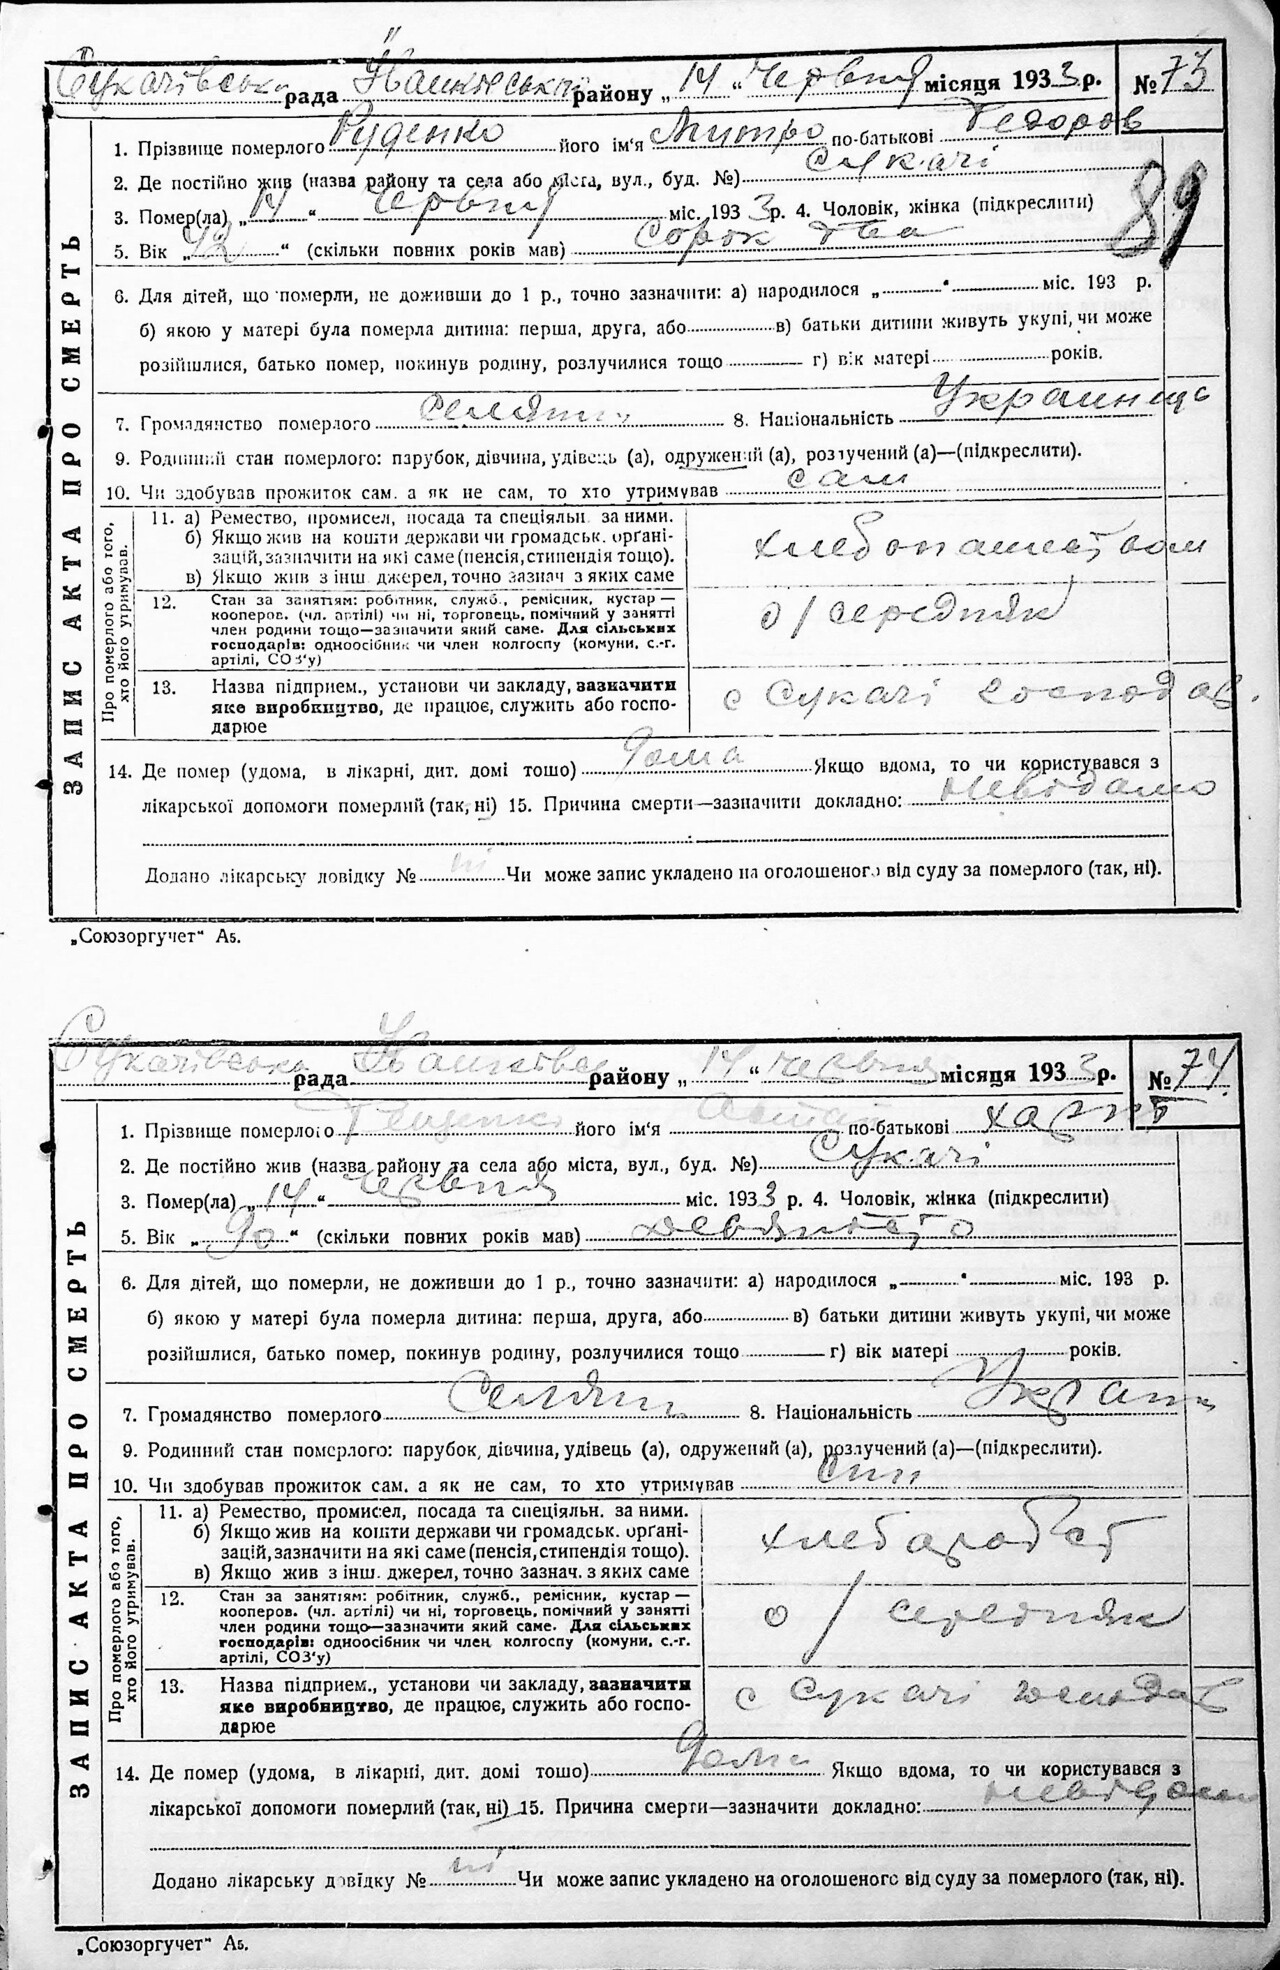 Сукачівська рада Іванківський району „14“ червня місяця 1933 р. № 73
1. Прізвище померлого Руденко його ім'я Митро по-батькові Федоров
2. Де постійно жив (назва району та села або міста, вул., буд. №) Сукачі
3. Помер(ла) „14“ червня міс. 1933 р. 4. Чоловік, жінка (підкреслити)
89
5. Вік „42“ (скільки повних років мав) сорок два
6. Для дітей, що померли, не доживши до 1 р., точно зазначити: а) народилося „ “ міс. 193 р.
б) якою у матері була померла дитина: перша, друга, або в) батьки дитини живуть укупі, чи може
розійшлися, батько помер, покинув родину, розлучилися тощо г) вік матері років.
7. Громадянство померлого селянин 8. Національність Украинец
9. Родинний стан померлого: парубок, дівчина, удівець (а), одружений (а), розлучений (а)—(підкреслити).
10. Чи здобував прожиток сам, а як не сам, то хто утримував сам
ЗАПИС АКТА ПРО СМЕРТЬ
Про померлого або того, хто його утримував.
11. а) Ремество, промисел, посада та спеціяльн. за ними.
б) Якщо жив на кошти держави чи громадськ. органі-
зацій, зазначити на які саме (пенсія, стипендія тощо).
в) Якщо жив з інш. джерел, точно зазнач. з яких саме
хлебопашеством
12. Стан за занятям: робітник, служб., ремісник, кустар—
кооперов. (чл. артілі) чи ні, торговець, помічний у занятті
член родини тощо—зазначити який саме. Для сільських
господарів: одноосібник чи член колгоспу (комуни, с.-г.
артілі, СОЗ'у)
о/середняк
13. Назва підприєм., установи чи закладу, зазначити
яке виробництво, де працює, служить або госпо-
дарює
с Сукачі господар.
14. Де помер (удома, в лікарні, дит. домі тошо) дома Якщо вдома, то чи користувався з
лікарської допомоги померлий (так, ні) 15. Причина смерти—зазначити докладно: невідомо
Додано лікарську довідку № ні Чи може запис укладено на оголошеного від суду за померлого (так, ні).
„Союзоргучет“ А5.
Сукачівська рада району „14“ червня місяця 1933 р. № 74
1. Прізвище померлого його ім'я по-батькові
2. Де постійно жив (назва району та села або міста, вул., буд. №) Сукачі
3. Помер(ла) „14“ червня міс. 1933 р. 4. Чоловік, жінка (підкреслити)
5. Вік „90“ (скільки повних років мав) девяносто
6. Для дітей, що померли, не доживши до 1 р., точно зазначити: а) народилося „ “ міс. 193 р.
б) якою у матері була померла дитина: перша, друга, або в) батьки дитини живуть укупі, чи може
розійшлися, батько помер, покинув родину, розлучилися тощо г) вік матері років.
7. Громадянство померлого Селянин 8. Національність
9. Родинний стан померлого: парубок, дівчина, удівець (а), одружений (а), розлучений (а)—(підкреслити).
10. Чи здобував прожиток сам, а як не сам, то хто утримував
ЗАПИС АКТА ПРО СМЕРТЬ
Про померлого або того, хто його утримував.
11. а) Ремество, промисел, посада та спеціяльн. за ними.
б) Якщо жив на кошти держави чи громадськ. органі-
зацій, зазначити на які саме (пенсія, стипендія тощо).
в) Якщо жив з інш. джерел, точно зазнач. з яких саме
12. Стан за занятям: робітник, служб., ремісник, кустар—
кооперов. (чл. артілі) чи ні, торговець, помічний у занятті
член родини тощо—зазначити який саме. Для сільських
господарів: одноосібник чи член колгоспу (комуни, с.-г.
артілі, СОЗ'у)
о/середняк
13. Назва підприєм., установи чи закладу, зазначити
яке виробництво, де працює, служить або госпо-
дарює
с Сукачі
14. Де помер (удома, в лікарні, дит. домі тошо) дома Якщо вдома, то чи користувався з
лікарської допомоги померлий (так, ні) 15. Причина смерти—зазначити докладно: невідомо
Додано лікарську довідку № ні Чи може запис укладено на оголошеного від суду за померлого (так, ні).
„Союзоргучет“ А5.